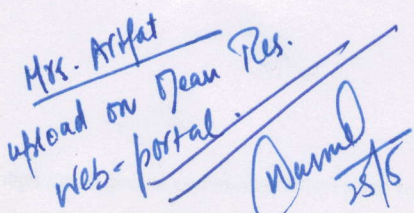 Mrs. Arffat
upload on Dean Res.
Web-portal.
25/5